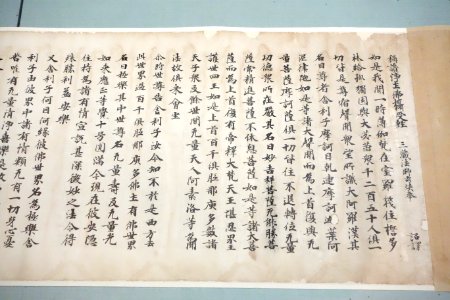 稱讚淨土佛攝受經
三藏法師玄奘奉 詔譯
如是我聞一時薄伽梵在室羅筏住誓多
林給孤獨園與大苾芻衆千二百五十人俱一
切皆是尊宿聲聞衆望所識大阿羅漢其
名曰尊者舍利子摩訶目犍連摩訶迦葉阿
泥律陀如是等諸大聲聞而爲上首復與无
量菩薩摩訶薩俱一切皆住不退轉位无量
功德衆所莊嚴其名曰妙吉祥菩薩无能勝菩
薩常精進菩薩不休息菩薩如是等諸大菩
薩而爲上首復有帝釋大梵天王堪忍界主
護世四王如是上首百千俱胝那庾多數諸
天子衆及餘世間无量天人阿素洛等爲聞
法故俱來會坐
尒時世尊告舍利子汝今知不於是西方去
此世界過百千俱胝那庾多佛土有佛世界
名曰極樂其中世尊名无量壽及无量光
如來應正等覺十號圓滿今現在彼安隱
住持爲諸有情宣說甚深微妙之法令得
殊勝利益安樂
又舍利子何因何緣彼佛世界名爲極樂舍
利子由彼界中諸有情類无有一切身心憂
苦唯有无量清淨喜樂是故